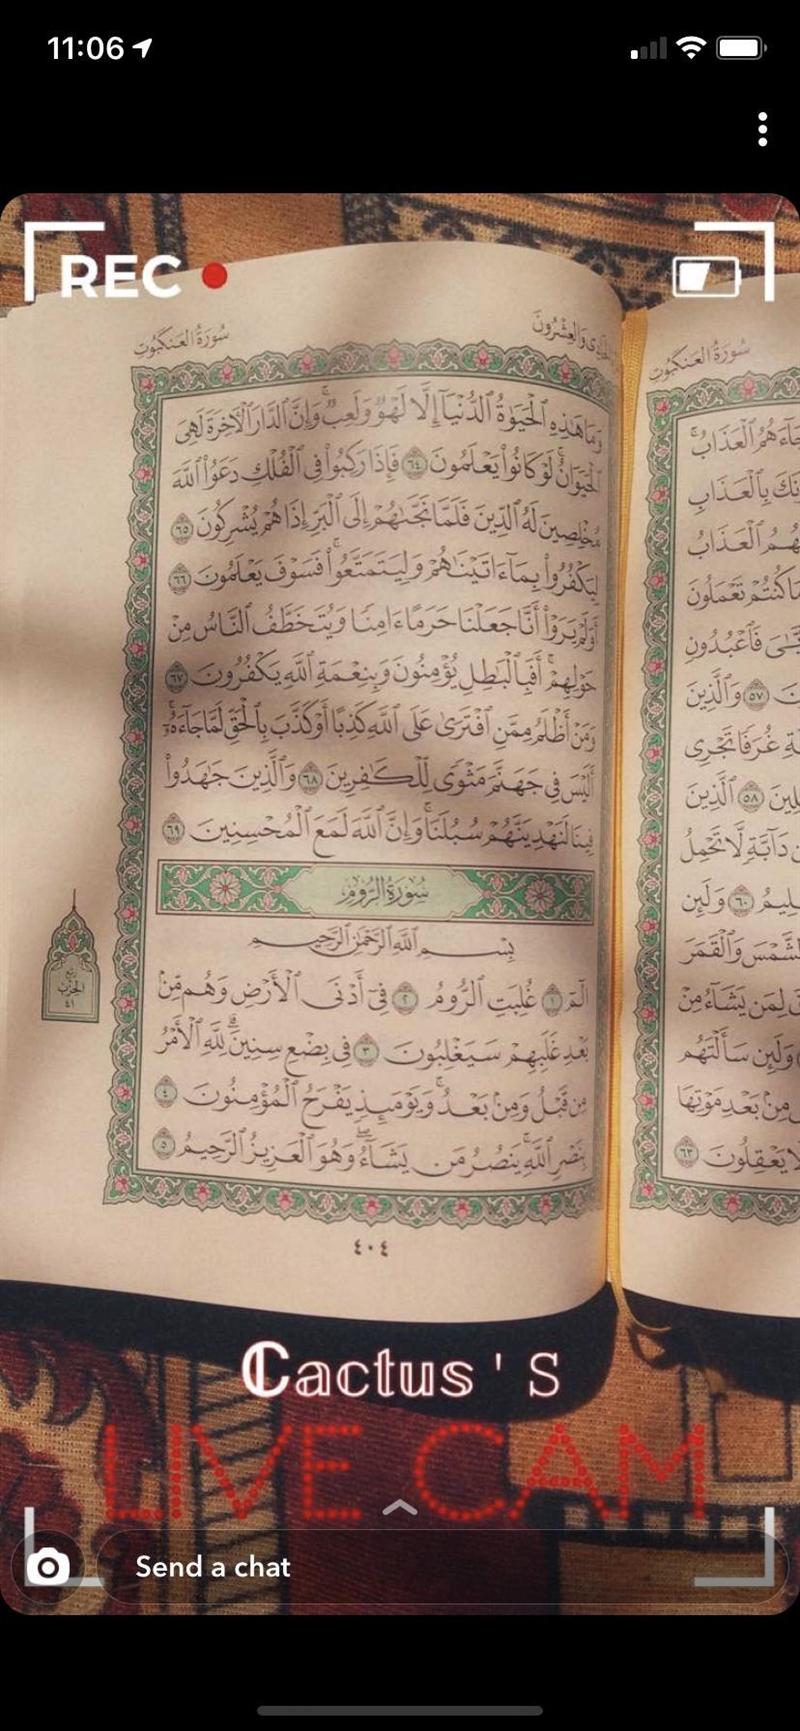 11:06
REC
سُورَةُ العَنكَبُوتِ
وَالعِشْرُونَ
وَمَا هَٰذِهِ ٱلْحَيَوٰةُ ٱلدُّنْيَآ إِلَّا لَهْوٌ وَلَعِبٌ ۚ وَإِنَّ ٱلدَّارَ ٱلْءَاخِرَةَ لَهِىَ
ٱلْحَيَوَانُ ۚ لَوْ كَانُوا۟ يَعْلَمُونَ ٦٤ فَإِذَا رَكِبُوا۟ فِى ٱلْفُلْكِ دَعَوُا۟ ٱللَّهَ
مُخْلِصِينَ لَهُ ٱلدِّينَ فَلَمَّا نَجَّىٰهُمْ إِلَى ٱلْبَرِّ إِذَا هُمْ يُشْرِكُونَ ٦٥
لِيَكْفُرُوا۟ بِمَآ ءَاتَيْنَٰهُمْ وَلِيَتَمَتَّعُوا۟ ۚ فَسَوْفَ يَعْلَمُونَ ٦٦
أَوَلَمْ يَرَوْا۟ أَنَّا جَعَلْنَا حَرَمًا ءَامِنًا وَيُتَخَطَّفُ ٱلنَّاسُ مِنْ
حَوْلِهِمْ ۚ أَفَبِٱلْبَٰطِلِ يُؤْمِنُونَ وَبِنِعْمَةِ ٱللَّهِ يَكْفُرُونَ ٦٧
وَمَنْ أَظْلَمُ مِمَّنِ ٱفْتَرَىٰ عَلَى ٱللَّهِ كَذِبًا أَوْ كَذَّبَ بِٱلْحَقِّ لَمَّا جَآءَهُۥٓ ۚ
أَلَيْسَ فِى جَهَنَّمَ مَثْوًى لِّلْكَٰفِرِينَ ٦٨ وَٱلَّذِينَ جَٰهَدُوا۟
فِينَا لَنَهْدِيَنَّهُمْ سُبُلَنَا ۚ وَإِنَّ ٱللَّهَ لَمَعَ ٱلْمُحْسِنِينَ ٦٩
سُورَةُ الرُّومِ
بِسْمِ ٱللَّهِ ٱلرَّحْمَٰنِ ٱلرَّحِيمِ
الٓمٓ ١ غُلِبَتِ ٱلرُّومُ ٢ فِىٓ أَدْنَى ٱلْأَرْضِ وَهُم مِّنۢ
بَعْدِ غَلَبِهِمْ سَيَغْلِبُونَ ٣ فِى بِضْعِ سِنِينَ ۗ لِلَّهِ ٱلْأَمْرُ
مِن قَبْلُ وَمِنۢ بَعْدُ ۚ وَيَوْمَئِذٍ يَفْرَحُ ٱلْمُؤْمِنُونَ ٤
بِنَصْرِ ٱللَّهِ ۚ يَنصُرُ مَن يَشَآءُ ۖ وَهُوَ ٱلْعَزِيزُ ٱلرَّحِيمُ ٥
٤٠٤
رُبْعُ
الحِزْبِ
٤١
سُورَةُ العَنكَبُوتِ
هُمُ ٱلْعَذَابُ ۚ
بِٱلْعَذَابِ
ٱلْعَذَابُ
مَا كُنتُمْ تَعْمَلُونَ
فَٱعْبُدُونِ
٥٧ وَٱلَّذِينَ
غُرَفًا تَجْرِى
٥٨ ٱلَّذِينَ
دَآبَّةٍ لَّا تَحْمِلُ
٦٠ وَلَئِن
وَٱلْقَمَرَ
لِمَن يَشَآءُ مِنْ
وَلَئِن سَأَلْتَهُم
مِنۢ بَعْدِ مَوْتِهَا
لَا يَعْقِلُونَ ٦٣
Cactus ' S
LIVE CAM
Send a chat